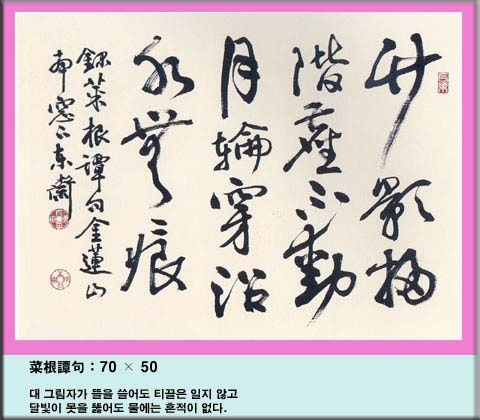 竹影掃
階塵不動
月輪穿沼
水無痕
錄菜根譚句金蓮山
南窓下東
菜根譚句 : 70 × 50
대 그림자가 뜰을 쓸어도 티끌은 일지 않고
달빛이 못을 뚫어도 물에는 흔적이 없다.